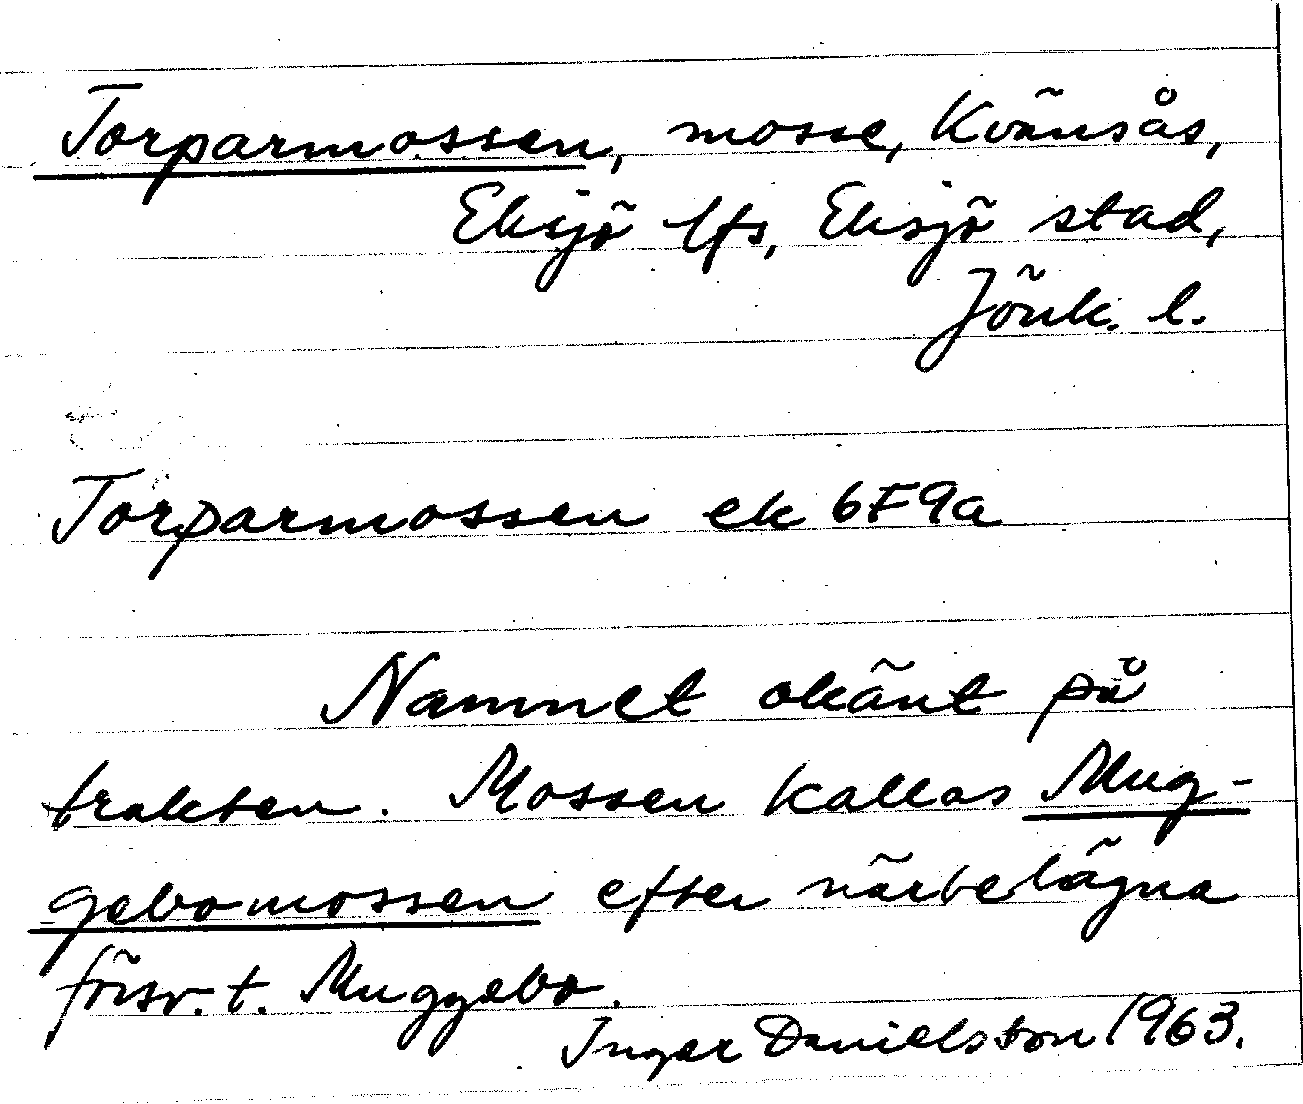 Torparmossen, mosse, Kvänsås,
Eksjö lfs, Eksjö stad,
Jönk. l.
Torparmossen ek 6F9a
Namnet okänt på
trakten. Mossen kallas Mug-
gebomossen efter närbelägna
försv. t. Muggebo.
Inger Danielsson 1963.